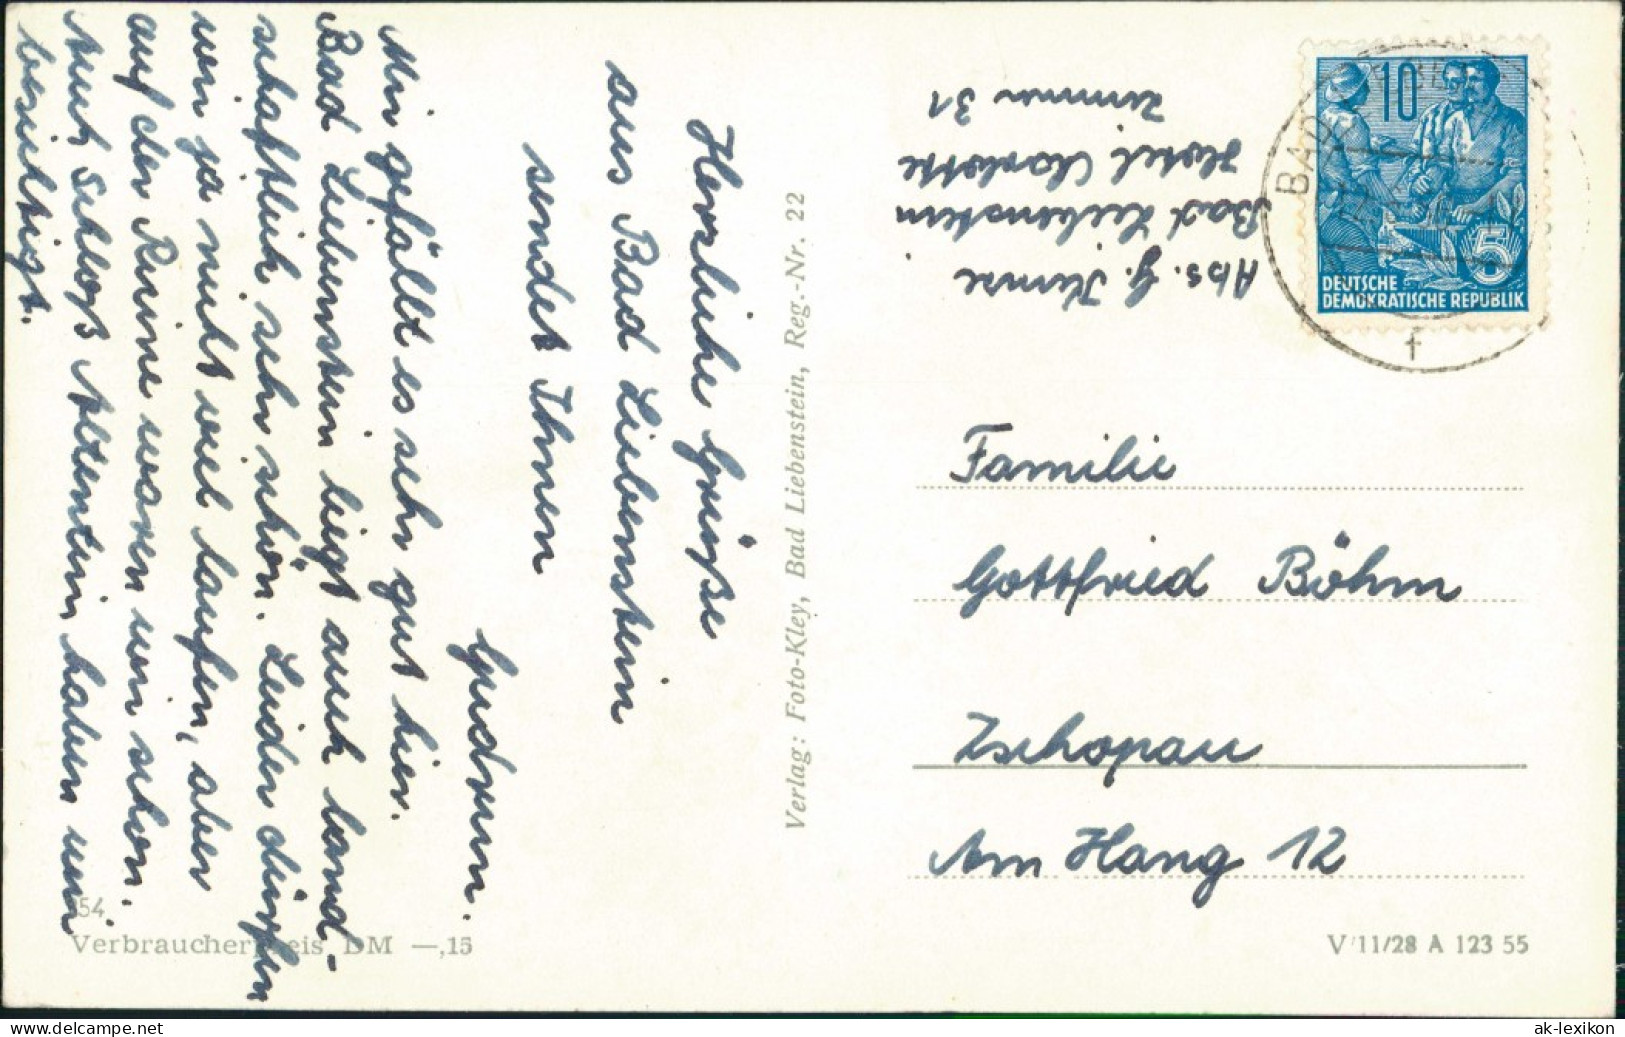 Herzliche Grüße
aus Bad Liebenstein
sendet Ihnen
Gudrun.
Mir gefällt es sehr gut hier.
Bad Liebenstein liegt auch land-
schaftlich sehr schön. Leider dürfen
wir ja nicht viel laufen, aber
auf der Ruine waren wir schon.
Auch Schloß Altenstein haben wir
besichtigt.
354
Verbraucherpreis DM —,15
Verlag: Foto-Kley, Bad Liebenstein, Reg.-Nr. 22
Abs. G.
Bad Liebenstein
Hotel Charlotte
Zimmer 31
BAD
f
10
5
DEUTSCHE
DEMOKRATISCHE REPUBLIK
Familie
Gottfried Böhm
Zschopau
Am Hang 12
V/11/28 A 123 55
www.delcampe.net
ak-lexikon